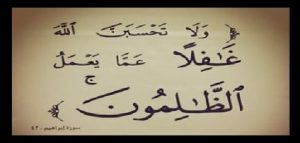 ﴿ وَلَا تَحْسَبَنَّ اللَّهَ
غَٰفِلًا عَمَّا يَعْمَلُ
الظَّٰلِمُونَ ۚ ﴾
سورة إبراهيم ، ٤٢